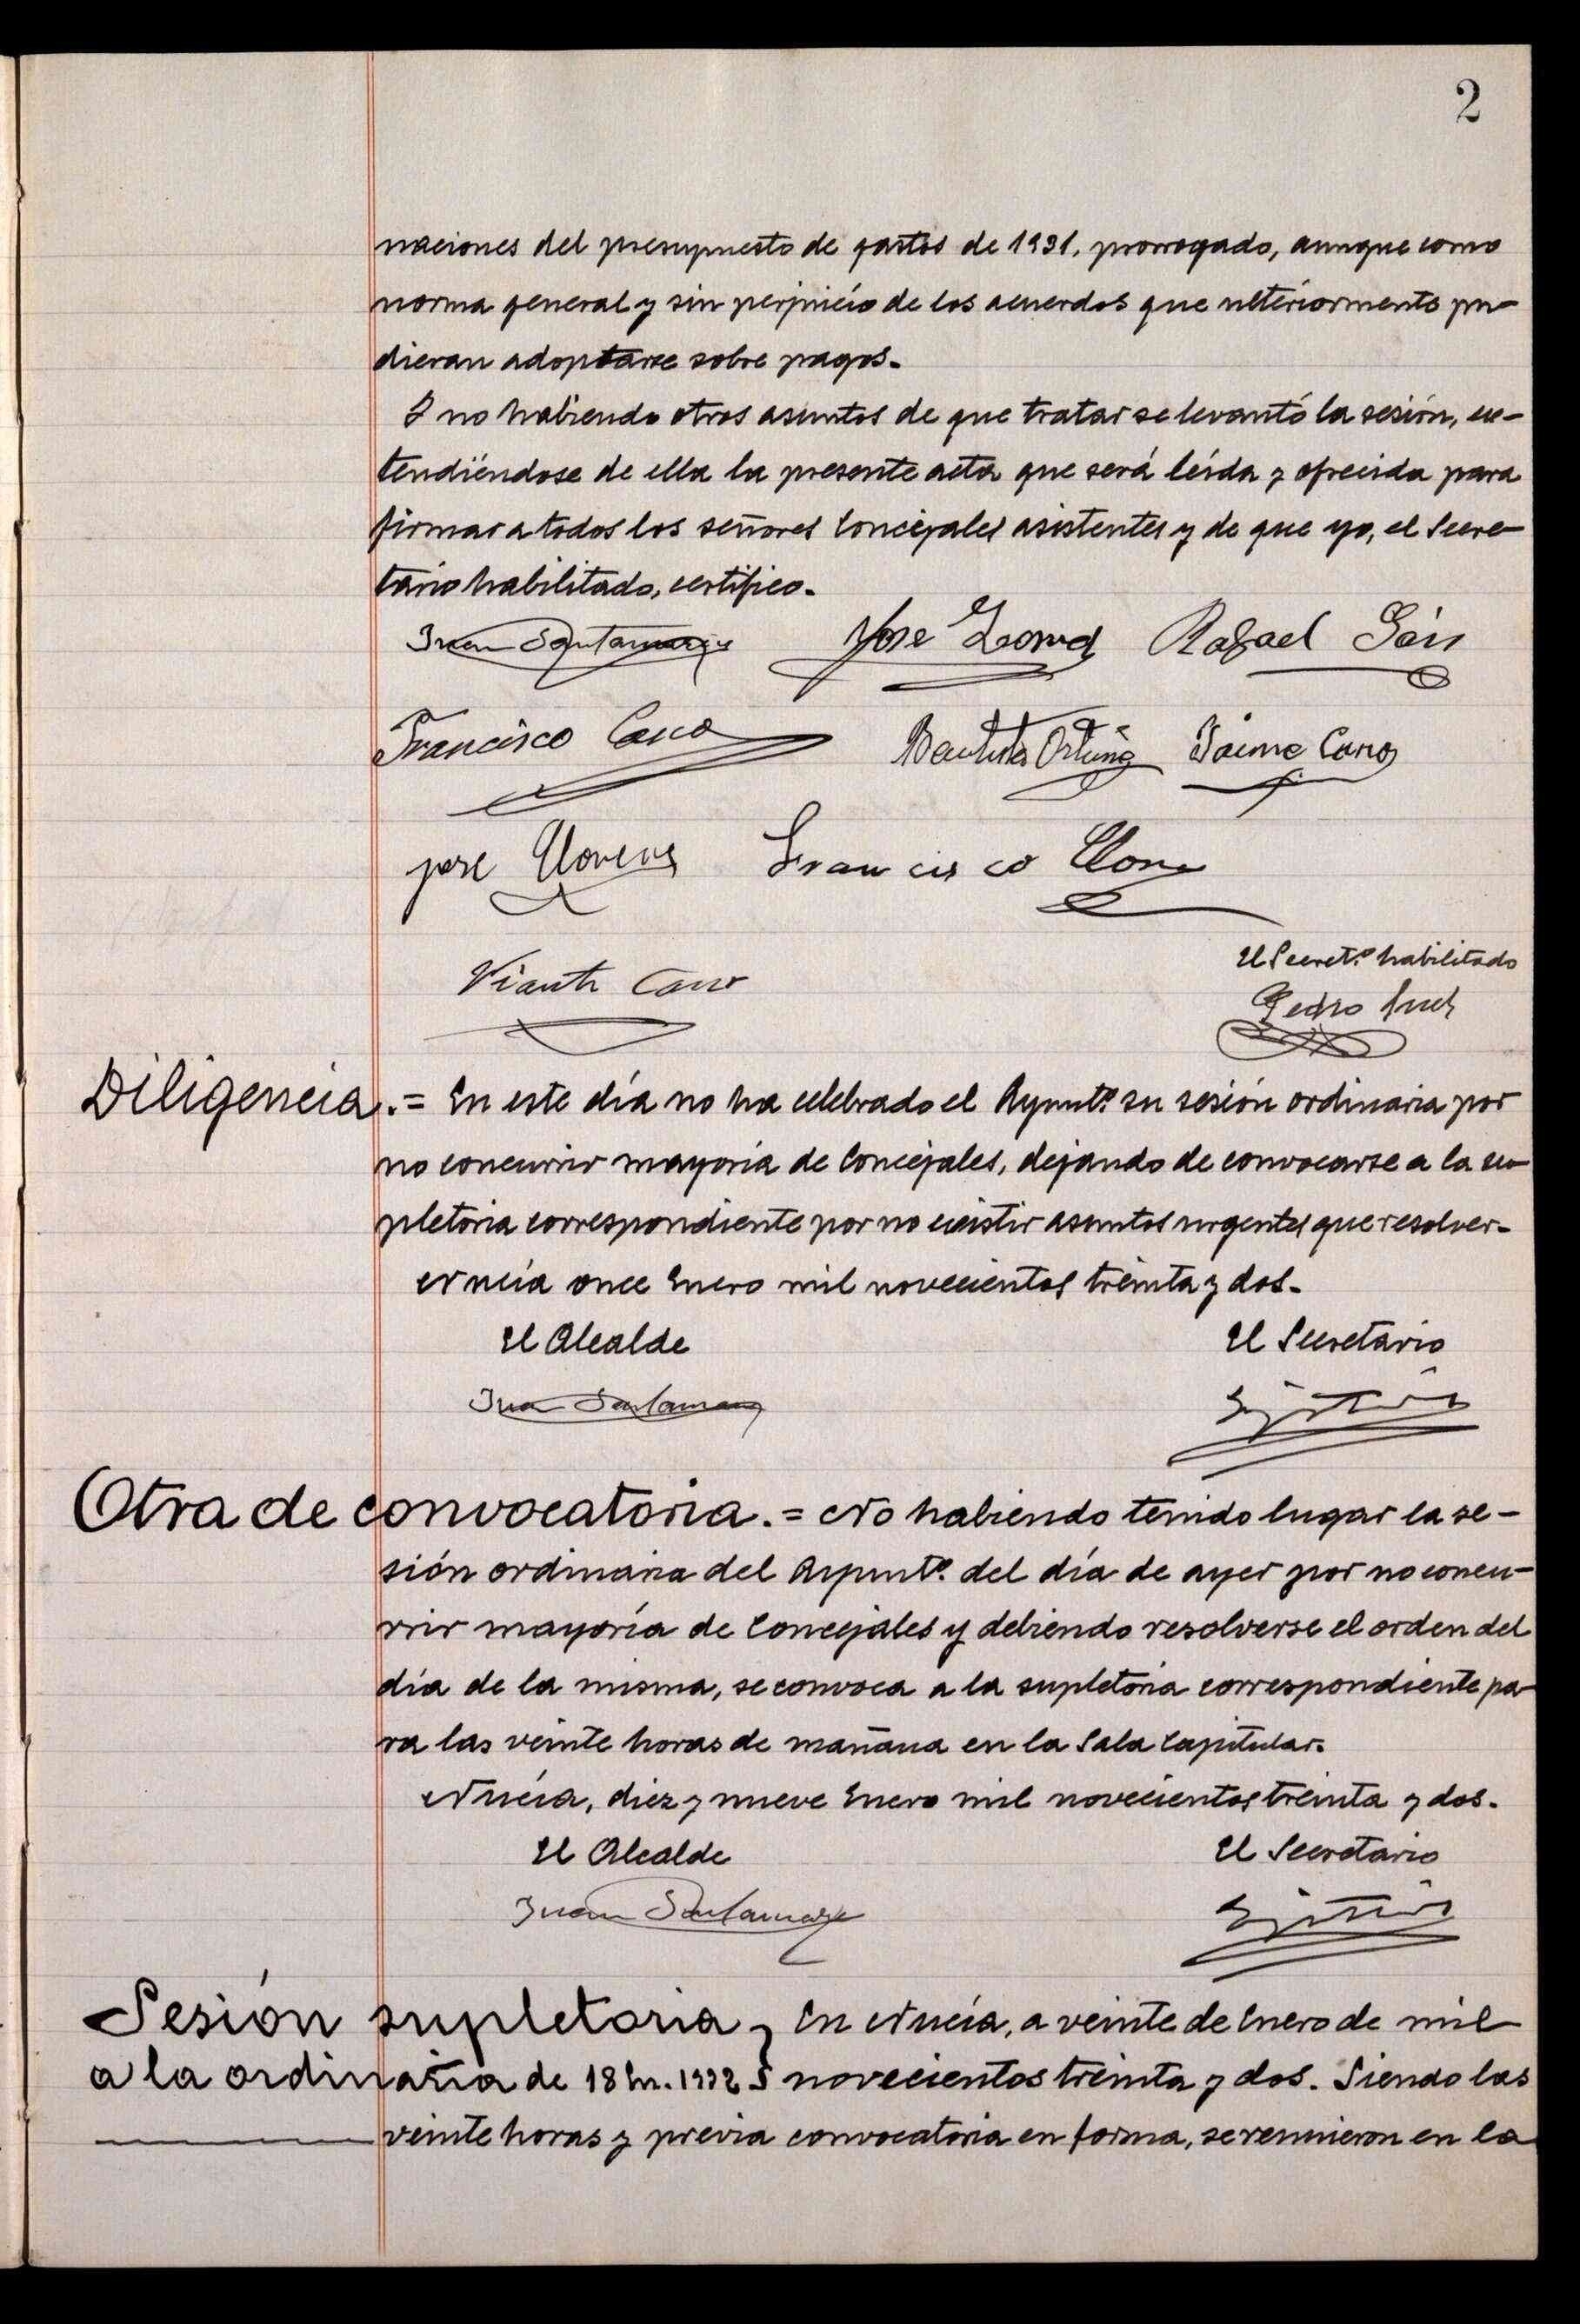 2
naciones del presupuesto de gastos de 1931, prorrogado, aunque como
norma general y sin perjuicio de los acuerdos que ulteriormente pu-
dieran adoptarse sobre pagos.
Y no habiendo otros asuntos de que tratar se levantó la sesión, ex-
tendiéndose de ella la presente acta que será leída y ofrecida para
firmar a todos los señores Concejales asistentes y de que yo, el Secre-
tario habilitado, certifico.
Juan Santamaria José Rafael
Francisco Cano Bautista Ortuño Jaime Cano
José Llorens Francisco
Vicente Cano
El Secret.º habilitado
Pedro Such
Diligencia.= En este día no ha celebrado el Ayunt.º su sesión ordinaria por
no concurrir mayoría de Concejales, dejando de convocarse a la su-
pletoria correspondiente por no existir asuntos urgentes que resolver.
Nucía once Enero mil novecientos treinta y dos.
El Alcalde El Secretario
Juan Santamaria
Otra de convocatoria.= No habiendo tenido lugar la se-
sión ordinaria del Ayunt.º del día de ayer por no concu-
rrir mayoría de Concejales y debiendo resolverse el orden del
día de la misma, se convoca a la supletoria correspondiente pa-
ra las veinte horas de mañana en la Sala Capitular.
Nucía, diez y nueve Enero mil novecientos treinta y dos.
El Alcalde El Secretario
Juan Santamaria
Sesión supletoria } En Nucía, a veinte de Enero de mil
a la ordinaria de 18 En. 1932 } novecientos treinta y dos. Siendo las
veinte horas y previa convocatoria en forma, se reunieron en la